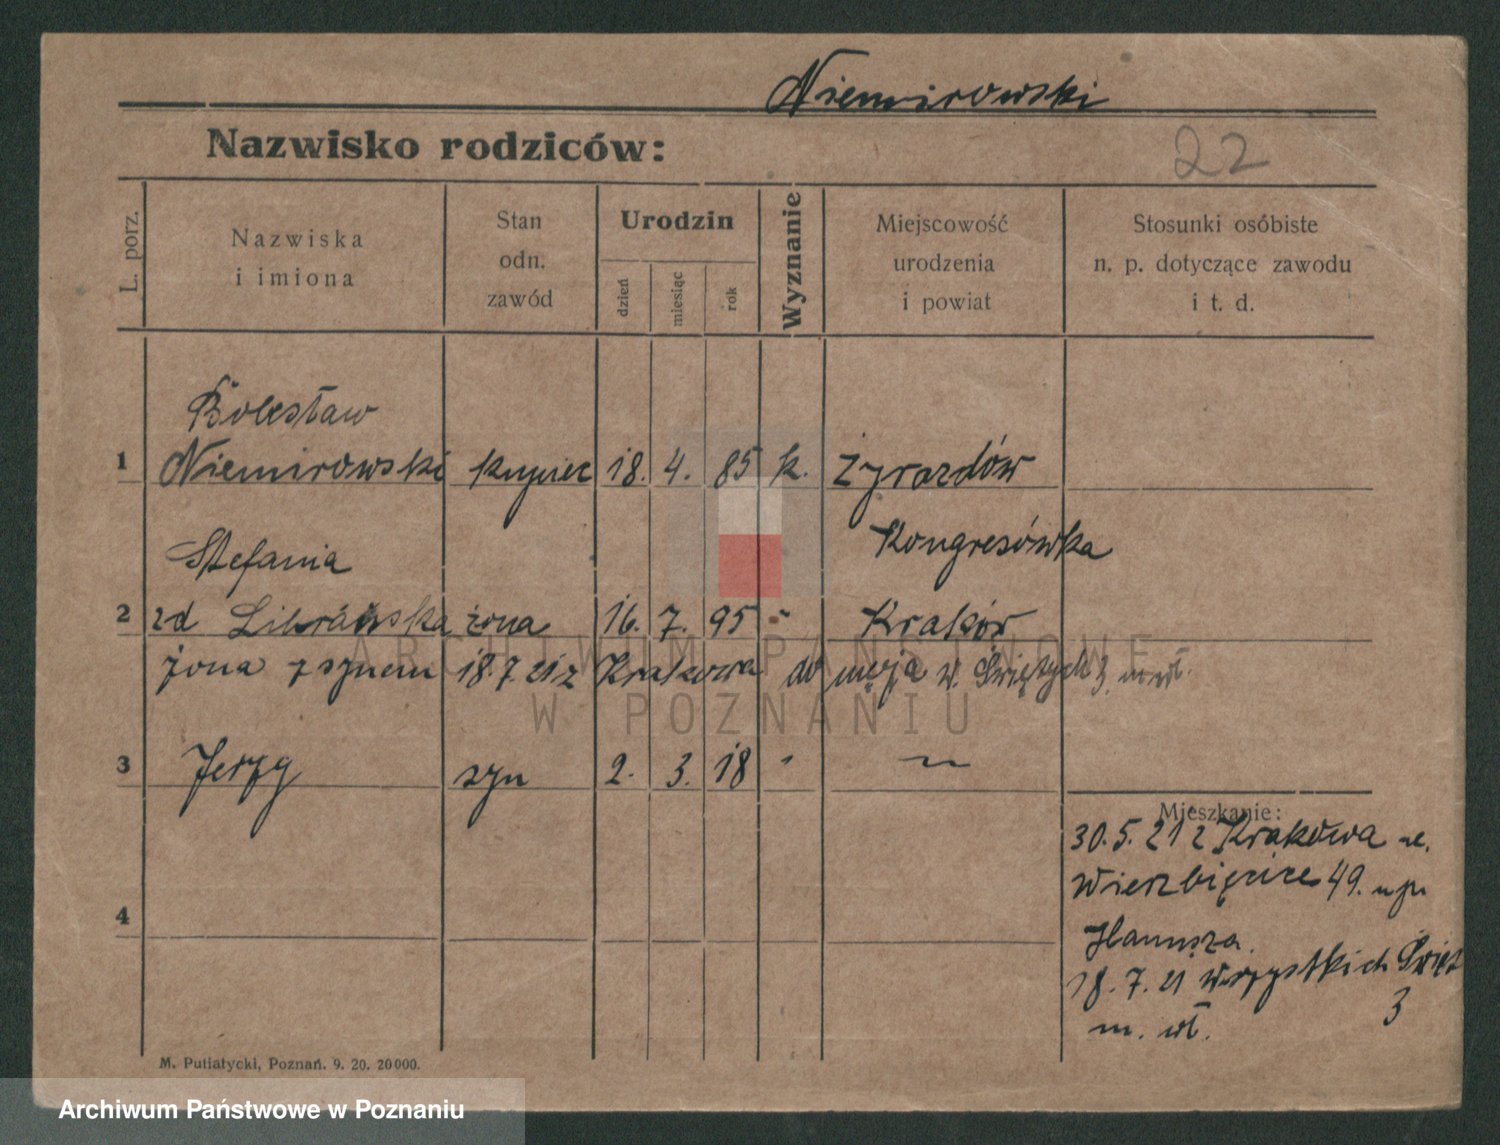 Niemirowski
Nazwisko rodziców:
22
L. porz.
Nazwiska
i imiona
Stan
odn.
zawód
Urodzin
dzień
miesiąc
rok
Wyznanie
Miejscowość
urodzenia
i powiat
Stosunki osóbiste
n. p. dotyczące zawodu
i t. d.
Bolesław
1 Niemirowski kupiec 18. 4. 85 k. Żyrardów
Kongresówka
Stefania
2 zd Librańska żona 16. 7. 95 " Kraków
żona z synem 18.7.21 z Krakowa do męża w. Świętych 3 m wł.
3 Jerzy syn 2. 3. 18 " "
Mieszkanie:
30.5.21 z Krakowa
Wierzbięcice 49.
Hanusza.
4
18.7.21 Wszystkich Święt
3
m. wł.
M. Putiatycki, Poznań. 9. 20. 20000.
ARCHIWUM PAŃSTWOWE
W POZNANIU
Archiwum Państwowe w Poznaniu